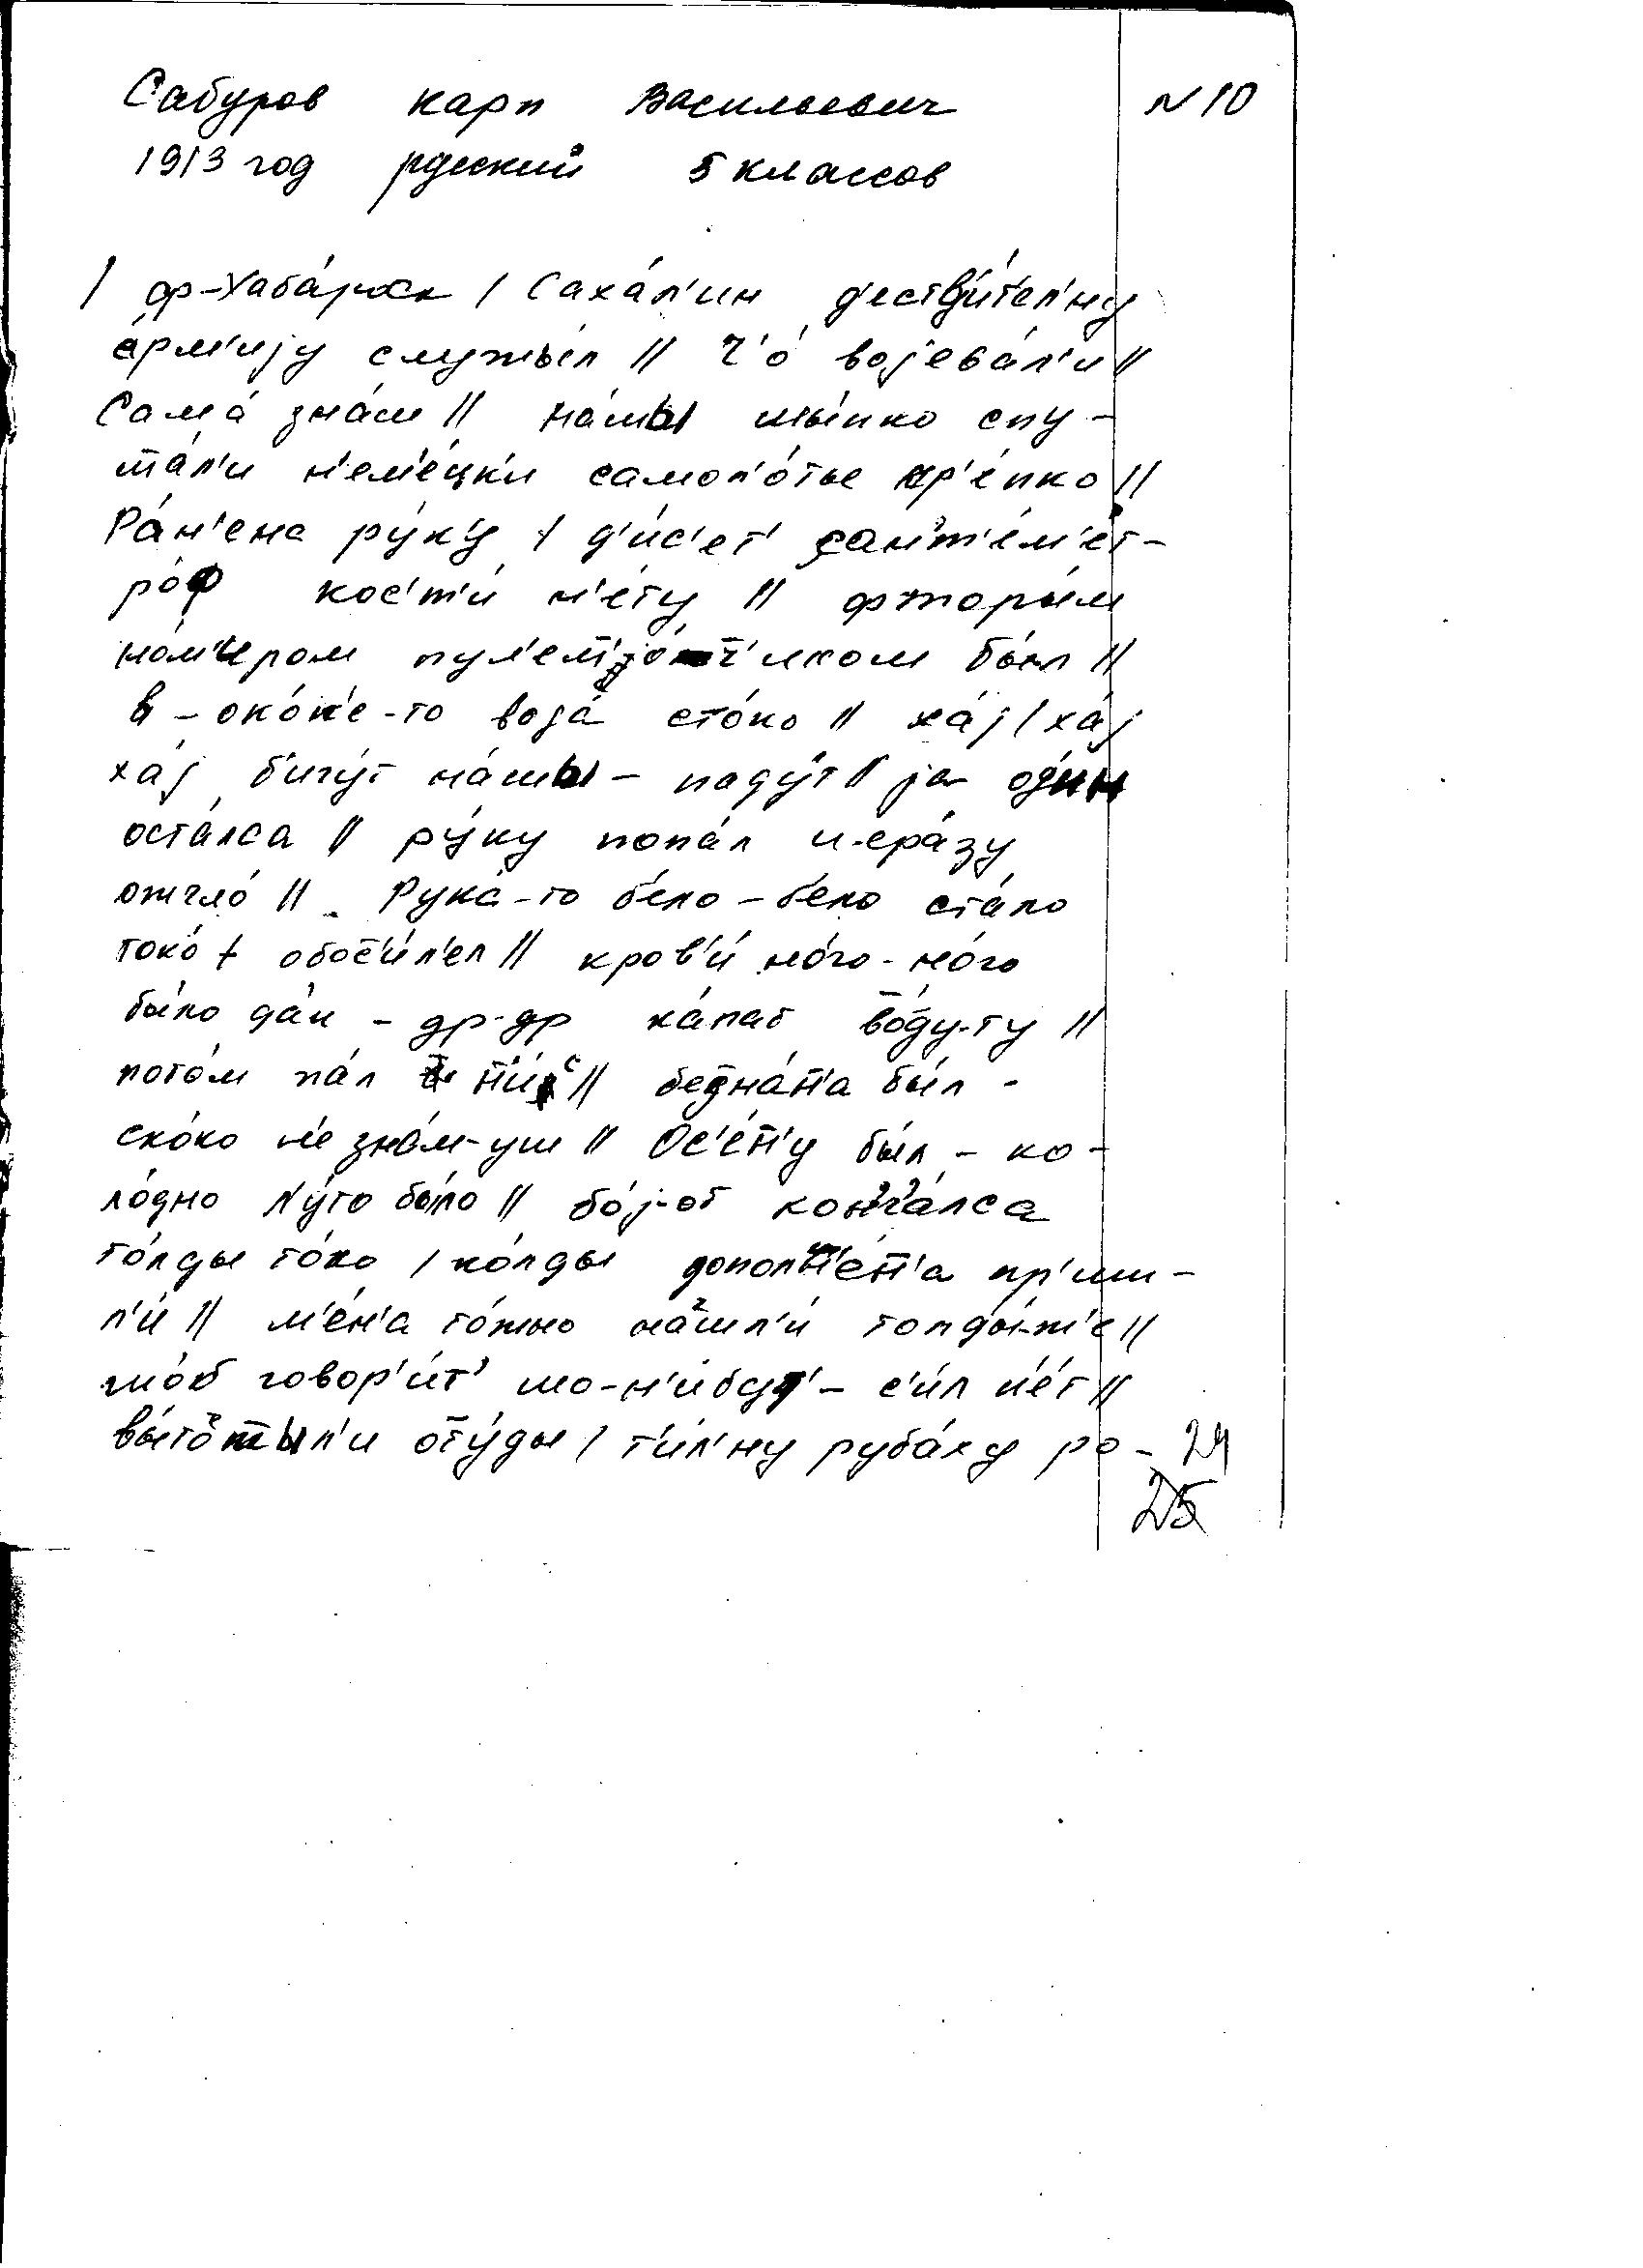 Сабуров Карп Васильевич N 10
1913 год русский 5 классов
/ ф-Хаба́роск / Саха́л'ин д'еств'и́тел'ну
а́рм'ију служы́л // Ч'о́ војева́л'и //
Сама́ зна́ш // на́шы шы́пко спу-
та́л'и н'ем'е́цк'и самол'о́тье кр'е́пко //
Ра́н'ена ру́к'у / д'и́с'ет' сант'е́м'ет-
ро́ф кос'т'и́ н'е́ту // фторы́м
но́м'ером пул'ем'јо́т'ч'иком бы́л //
в-око́п'е-то вода́ сто́ко // ха́ј / ха́ј
ха́ј б'игу́т на́шы - паду́т // ја од'и́н
оста́лса // ру́ку попа́л и-сра́зу
ожгло́ // Рука́-то б'е́ло-б'е́ло ста́ло
токо́ / обос'и́л'ел // кров'и́ но́го-но́го
бы́ло да́к - др-др ка́пат во́ду-ту //
пото́м па́л ни́с // бедна́т'а бы́л -
ско́ко н'е зна́м-уш // Ос'е́н'у бы́л - хо-
ло́дно л'у́то бы́ло // бо́ј-от конч'а́лса
то́лды то́ко / ко́лды дополн'е́н'а пр'иш-
л'и́ // м'ен'а́ то́жно нашл'и́ толды́-ж'е //
што́б говор'и́т' шо-н'ибу́д' - с'и́л н'е́т //
вы́тошшыл'и оту́ды / т'и́л'ну руба́ху ро- 24
25